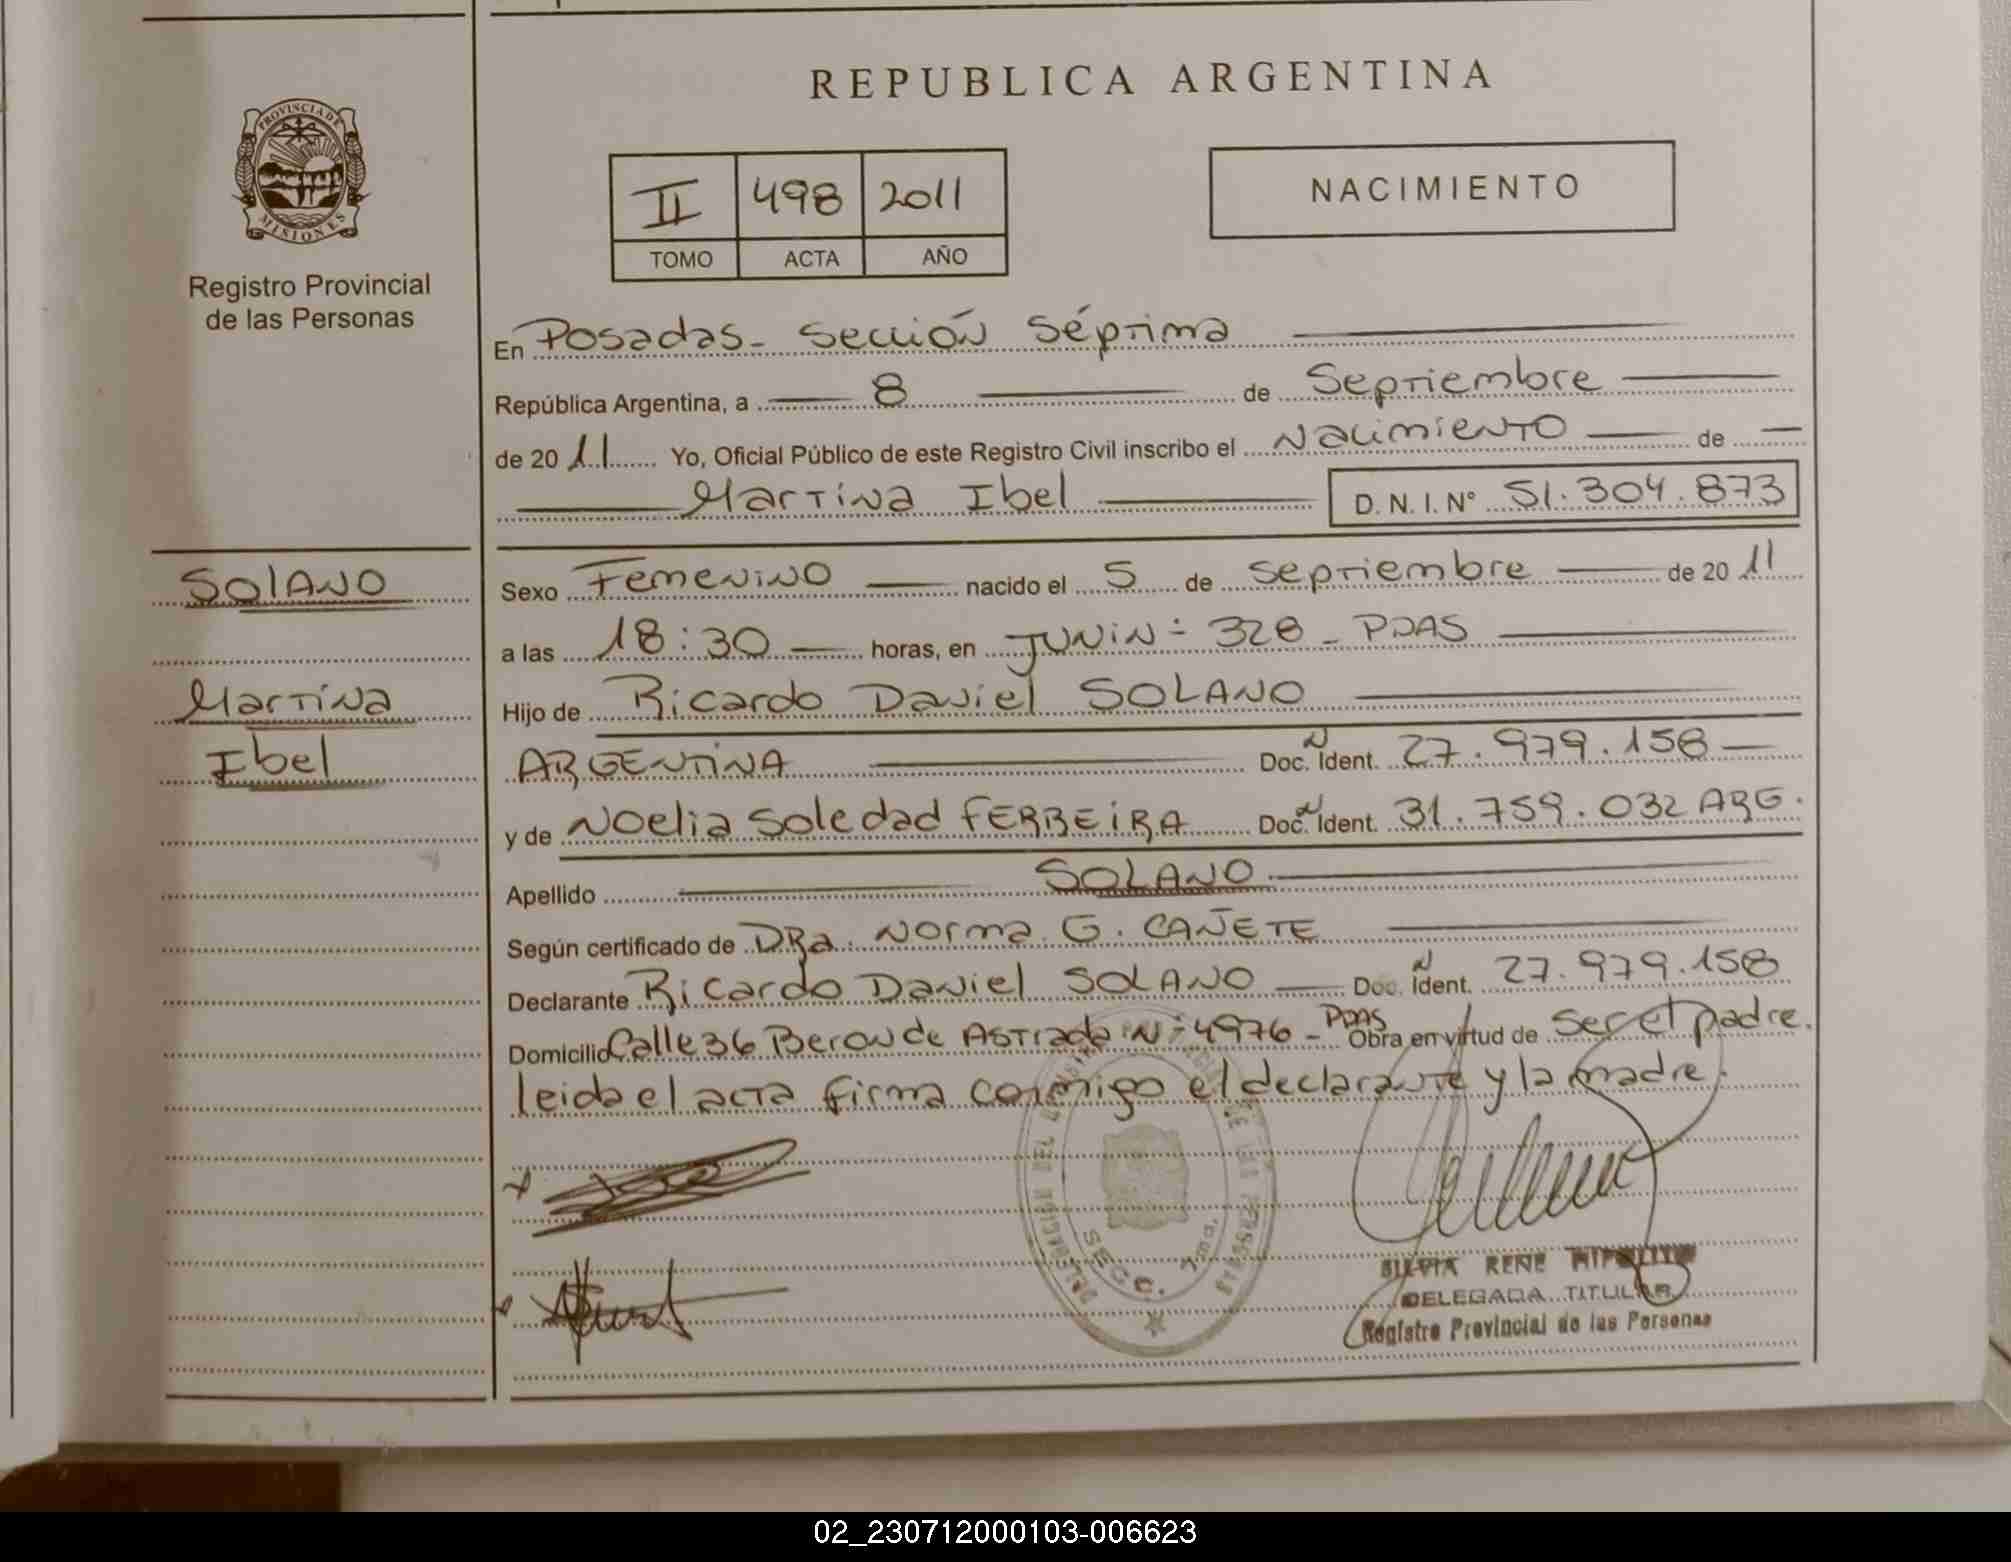 REPUBLICA ARGENTINA
PROVINCIA DE
MISIONES
Registro Provincial
de las Personas
II 498 2011
TOMO ACTA AÑO
NACIMIENTO
En Posadas - Sección Séptima
República Argentina, a 8 de Septiembre
de 2011 Yo, Oficial Público de este Registro Civil inscribo el Nacimiento de
Martina Ibel D.N.I.Nº 51.304.873
SOLANO
Martina
Ibel
Sexo Femenino nacido el 5 de Septiembre de 2011
a las 18:30 horas, en JUNIN - 328 - PDAS
Hijo de Ricardo Daniel SOLANO
ARGENTINA Doc. Ident. 27.979.158
y de Noelia Soledad FERREIRA Doc. Ident. 31.759.032 ARG.
Apellido SOLANO
Según certificado de DRa. Norma G. CAÑETE
Declarante Ricardo Daniel SOLANO Doc. Ident. 27.979.158
Domicilio Calle 36 Beron de Astrada N- 4976 - PDAS Obra en virtud de Ser el padre.
leida el acta firma conmigo el declarante y la madre.
SECC. 7ma.
SILVIA RENE
DELEGADA TITULAR
Registro Provincial de las Personas
02_230712000103-006623